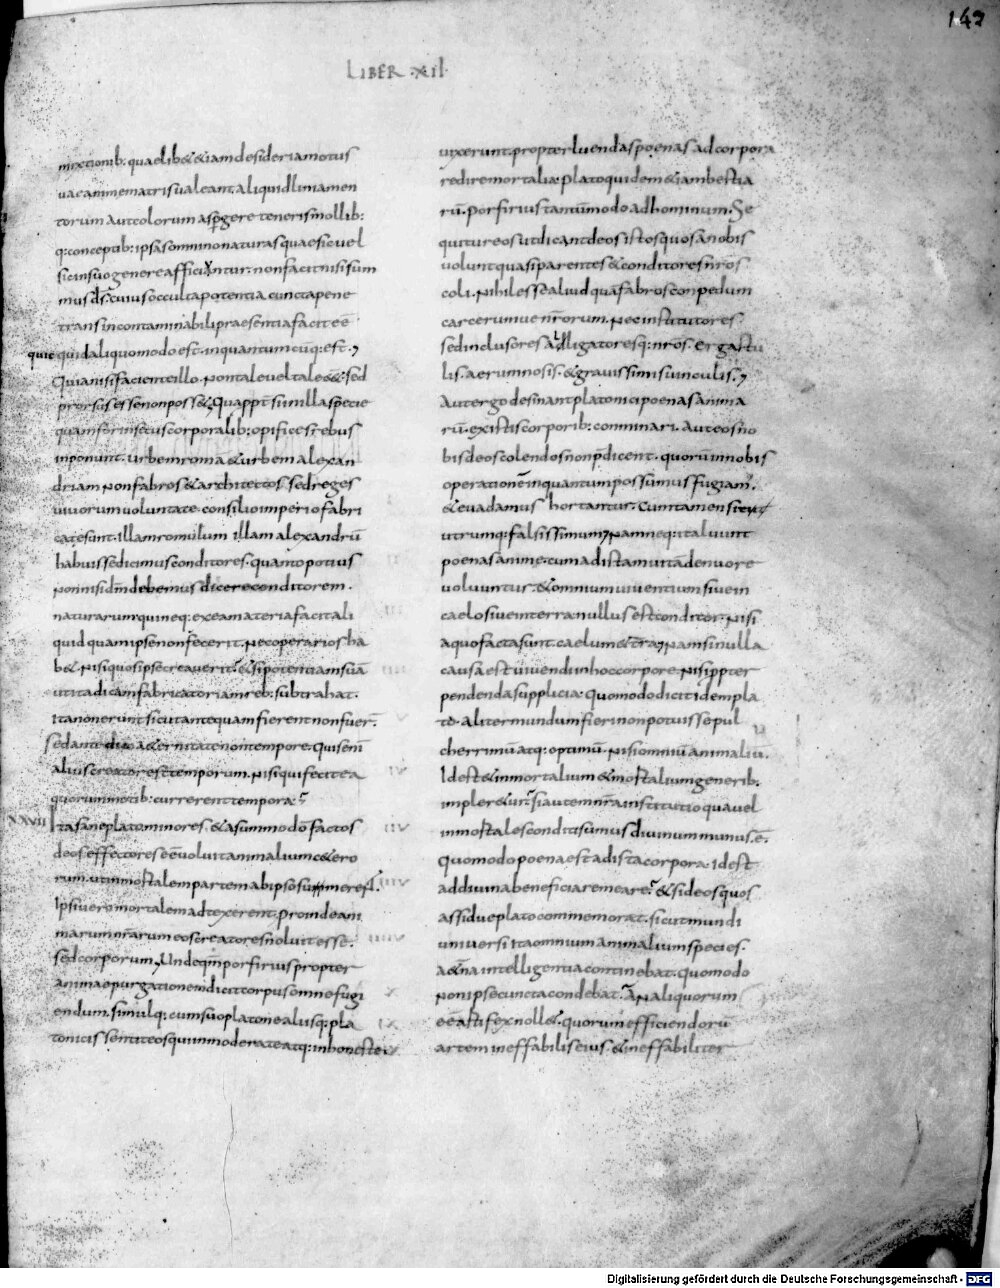 147
LIBER·XII·
mixtionib: quaelib&&iam desideria motus
uae anime matris ualeant aliquid liniamen
torum aut colorum aspergere teneris mollib:
q: conceptib: ipsas omnino naturas quae sic uel
sic in suo genere afficiantur. non facit nisi sum
mus ds. cuius occulta potentia cuncta pene
trans incontaminabili praesentia facit eē
quic quid aliquomodo est. inquantumcūq: est.
Quia nisi faciente illo. Non tale uel tale e&. sed
prorsus esse non poss&. Quappt si in illa specie
quam forinsecus corporalib: opifices rebus
inponunt. urbem roma & urbem alexan
driam non fabros & architectos. sed reges
quorum uoluntate. consilio imperio fabri
cate sunt. illam romulum illam alexandrū
habuisse dicimus conditores. quanto potius
non nisi dm̄ debemus dicere conditorem
naturarum qui neq: ex ea materia facit ali
quid quam ipse non fecerit. Nec operarios ha
b& nisi quos ipse creauerit. & si potentiam suā
ut ita dicam fabricatoriam reb: subtrahat.
Ita non erunt sicut antequam fierent non fuer̄.
Sed ante dico aeternitate non tempore. Quis enī
alius creator est temporum. nisi qui fecit ea
quorum motib: currerent tempora.
XXVII
Ita sane plato minores. & a summo dō factos
deos effectores eē uoluit animalium ceterо
rum. ut inmortalem partem ab ipso sumerent.
Ipsi uero mortalem adtexerent. proinde ani
marum nrārum eos creatores noluit esse.
sed corporum. Unde qm̄ porfirius propter
anime purgationem dicit corpus omne fugi
endum. simulq: cum suo platone aliisq: pla
tonicis sentit eos qui inmoderate atq: inhoneste
uixerunt. propter luendas poenas ad corpora
redire mortalia. plato quidem &iam bestia
rū. porfirius tantummodo ad hominum. Se
quitur eos ut dicant deos istos quos a nobis
uolunt quasi parentes & conditores nrōs
coli. Nihil esse aliud quā fabros conpedum
carcerumue nrōrum. Nec institutores.
sed inclusores adligatoresq: nrōs. ergastu
lis. aerumnosis. & grauissimis uinculis.
Aut ergo desinant platonici poenas anima
rū. ex istis corporib: comminari. Aut eos no
bis deos colendos non p̄dicent. quorum in nobis
operationē in quantum possumus fugiam.
& euadamus hortantur. Cum tamen sit
utrumq: falsissimum. Nam neq: ita luunt
poenas anime. cum ad istam uitā denuo re
uoluuntur. & omnium uiuentium siue in
caelo siue in terra nullus est conditor. Nisi
a quo facta sunt caelum & trā. Nam si nulla
causa est uiuendi in hoc corpore. nisi p̄pter
pendenda supplicia. quomodo dicit idem pla
to. aliter mundum fieri non potuisse pul
cherrimū atq: optimū. Nisi omniū animaliū.
Id est & inmortalium & mortalium generib:
impler&ur. Si autem nrā institutio qua uel
inmortales conditi sumus diuinum munus. ē.
quomodo poena est ad ista corpora. Id est
ad diuina beneficia remeare. & si deos quos
assidue plato commemorat. sicut mundi
uniuersi ita omnium animalium species.
a&na intelligentia continebat. quomodo
Non ipse cuncta condebat. An aliquorum
eē artifex noll&. quorum efficiendorū
artem ineffabilis eius. & ineffabiliter
Digitalisierung gefördert durch die Deutsche Forschungsgemeinschaft - DFG